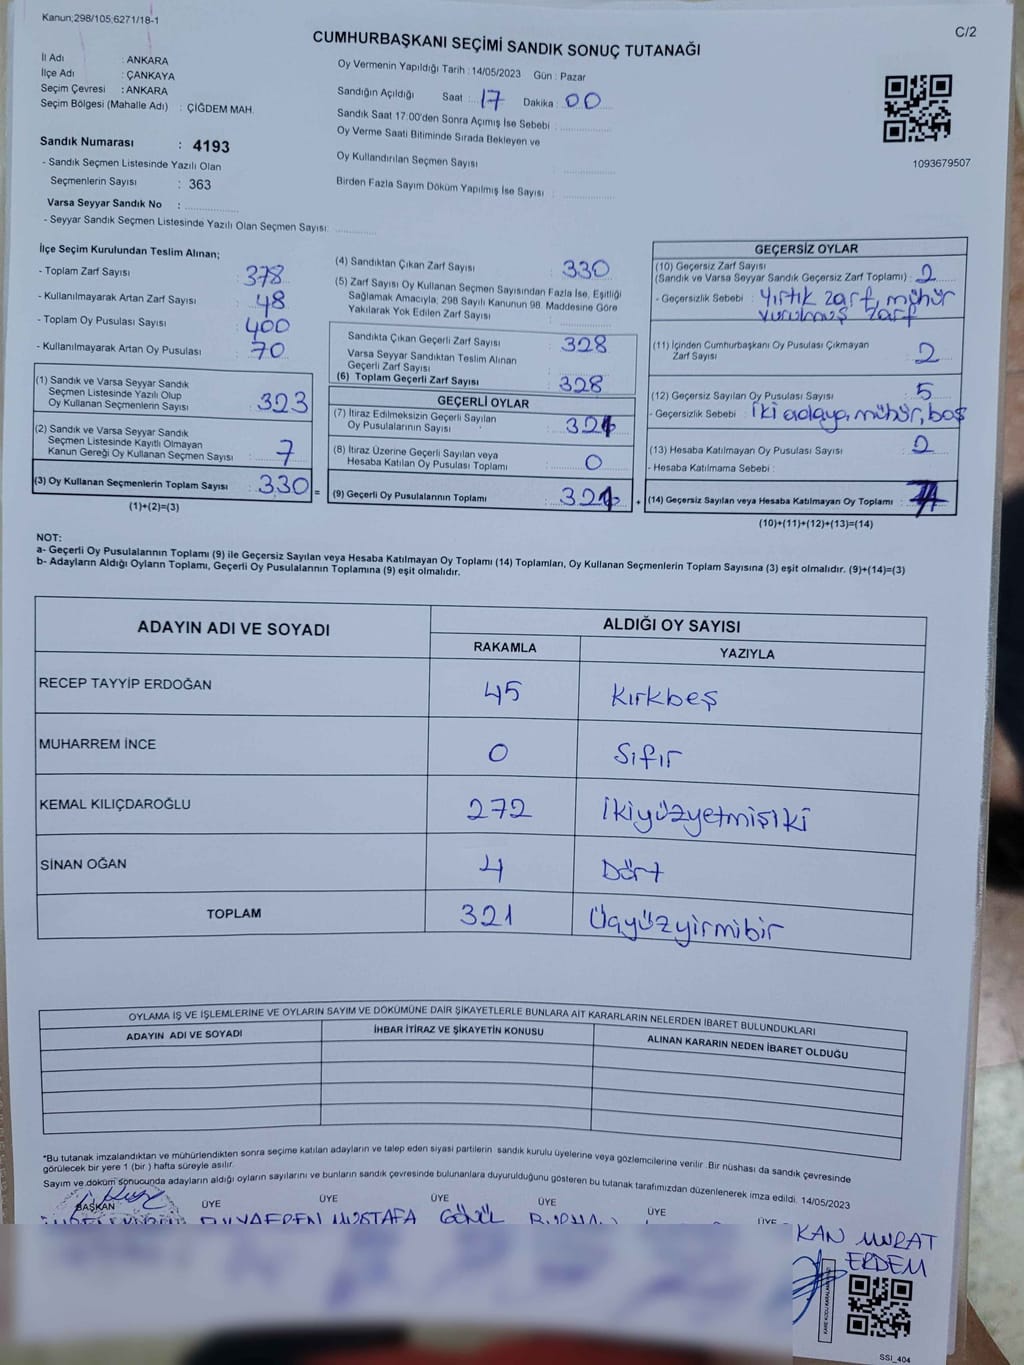 Kanun;298/105;6271/18-1
C/2
CUMHURBAŞKANI SEÇİMİ SANDIK SONUÇ TUTANAĞI
İl Adı : ANKARA
İlçe Adı : ÇANKAYA
Seçim Çevresi : ANKARA
Seçim Bölgesi (Mahalle Adı) : ÇİĞDEM MAH.
Sandık Numarası : 4193
- Sandık Seçmen Listesinde Yazılı Olan
Seçmenlerin Sayısı : 363
Varsa Seyyar Sandık No :
- Seyyar Sandık Seçmen Listesinde Yazılı Olan Seçmen Sayısı:
Oy Vermenin Yapıldığı Tarih : 14/05/2023 Gün : Pazar
Sandığın Açıldığı Saat : 17 Dakika : 00
Sandık Saat 17:00'den Sonra Açımış İse Sebebi :
Oy Verme Saati Bitiminde Sırada Bekleyen ve
Oy Kullandırılan Seçmen Sayısı :
Birden Fazla Sayım Döküm Yapılmış İse Sayısı :
1093679507
İlçe Seçim Kurulundan Teslim Alınan;
- Toplam Zarf Sayısı : 378
- Kullanılmayarak Artan Zarf Sayısı : 48
- Toplam Oy Pusulası Sayısı : 400
- Kullanılmayarak Artan Oy Pusulası : 70
(1) Sandık ve Varsa Seyyar Sandık
Seçmen Listesinde Yazılı Olup
Oy Kullanan Seçmenlerin Sayısı : 323
(2) Sandık ve Varsa Seyyar Sandık
Seçmen Listesinde Kayıtlı Olmayan
Kanun Gereği Oy Kullanan Seçmen Sayısı : 7
(3) Oy Kullanan Seçmenlerin Toplam Sayısı : 330 =
(1)+(2)=(3)
(4) Sandıktan Çıkan Zarf Sayısı : 330
(5) Zarf Sayısı Oy Kullanan Seçmen Sayısından Fazla İse, Eşitliği
Sağlamak Amacıyla; 298 Sayılı Kanunun 98. Maddesine Göre
Yakılarak Yok Edilen Zarf Sayısı :
Sandıkta Çıkan Geçerli Zarf Sayısı : 328
Varsa Seyyar Sandıktan Teslim Alınan
Geçerli Zarf Sayısı :
(6) Toplam Geçerli Zarf Sayısı : 328
GEÇERLİ OYLAR
(7) İtiraz Edilmeksizin Geçerli Sayılan
Oy Pusulalarının Sayısı : 321
(8) İtiraz Üzerine Geçerli Sayılan veya
Hesaba Katılan Oy Pusulası Toplamı : 0
(9) Geçerli Oy Pusulalarının Toplamı : 321 +
GEÇERSİZ OYLAR
(10) Geçersiz Zarf Sayısı
(Sandık ve Varsa Seyyar Sandık Geçersiz Zarf Toplamı) : 2
- Geçersizlik Sebebi : Yırtık zarf, mühür
vurulmuş zarf
(11) İçinden Cumhurbaşkanı Oy Pusulası Çıkmayan
Zarf Sayısı : 2
(12) Geçersiz Sayılan Oy Pusulası Sayısı : 5
- Geçersizlik Sebebi : İki adaya, mühür, boş
(13) Hesaba Katılmayan Oy Pusulası Sayısı : 2
- Hesaba Katılmama Sebebi :
(14) Geçersiz Sayılan veya Hesaba Katılmayan Oy Toplamı :
(10)+(11)+(12)+(13)=(14)
NOT:
a- Geçerli Oy Pusulalarının Toplamı (9) ile Geçersiz Sayılan veya Hesaba Katılmayan Oy Toplamı (14) Toplamları, Oy Kullanan Seçmenlerin Toplam Sayısına (3) eşit olmalıdır. (9)+(14)=(3)
b- Adayların Aldığı Oyların Toplamı, Geçerli Oy Pusulalarının Toplamına (9) eşit olmalıdır.
ADAYIN ADI VE SOYADI ALDIĞI OY SAYISI
RAKAMLA YAZIYLA
RECEP TAYYİP ERDOĞAN 45 Kırkbeş
MUHARREM İNCE 0 Sıfır
KEMAL KILIÇDAROĞLU 272 İkiyüzyetmişiki
SİNAN OĞAN 4 Dört
TOPLAM 321 Üçyüzyirmibir
OYLAMA İŞ VE İŞLEMLERİNE VE OYLARIN SAYIM VE DÖKÜMÜNE DAİR ŞİKAYETLERLE BUNLARA AİT KARARLARIN NELERDEN İBARET BULUNDUKLARI
ADAYIN ADI VE SOYADI İHBAR İTİRAZ VE ŞİKAYETİN KONUSU ALINAN KARARIN NEDEN İBARET OLDUĞU
*Bu tutanak imzalandıktan ve mühürlendikten sonra seçime katılan adayların ve talep eden siyasi partilerin sandık kurulu üyelerine veya gözlemcilerine verilir. Bir nüshası da sandık çevresinde
görülecek bir yere 1 (bir ) hafta süreyle asılır.
Sayım ve döküm sonucunda adayların aldığı oyların sayılarını ve bunların sandık çevresinde bulunanlara duyurulduğunu gösteren bu tutanak tarafımızdan düzenlenerek imza edildi. 14/05/2023
BAŞKAN ÜYE ÜYE ÜYE ÜYE ÜYE ÜYE
MUSTAFA GÖNÜL
KAN MURAT
ERDEM
SSI_404